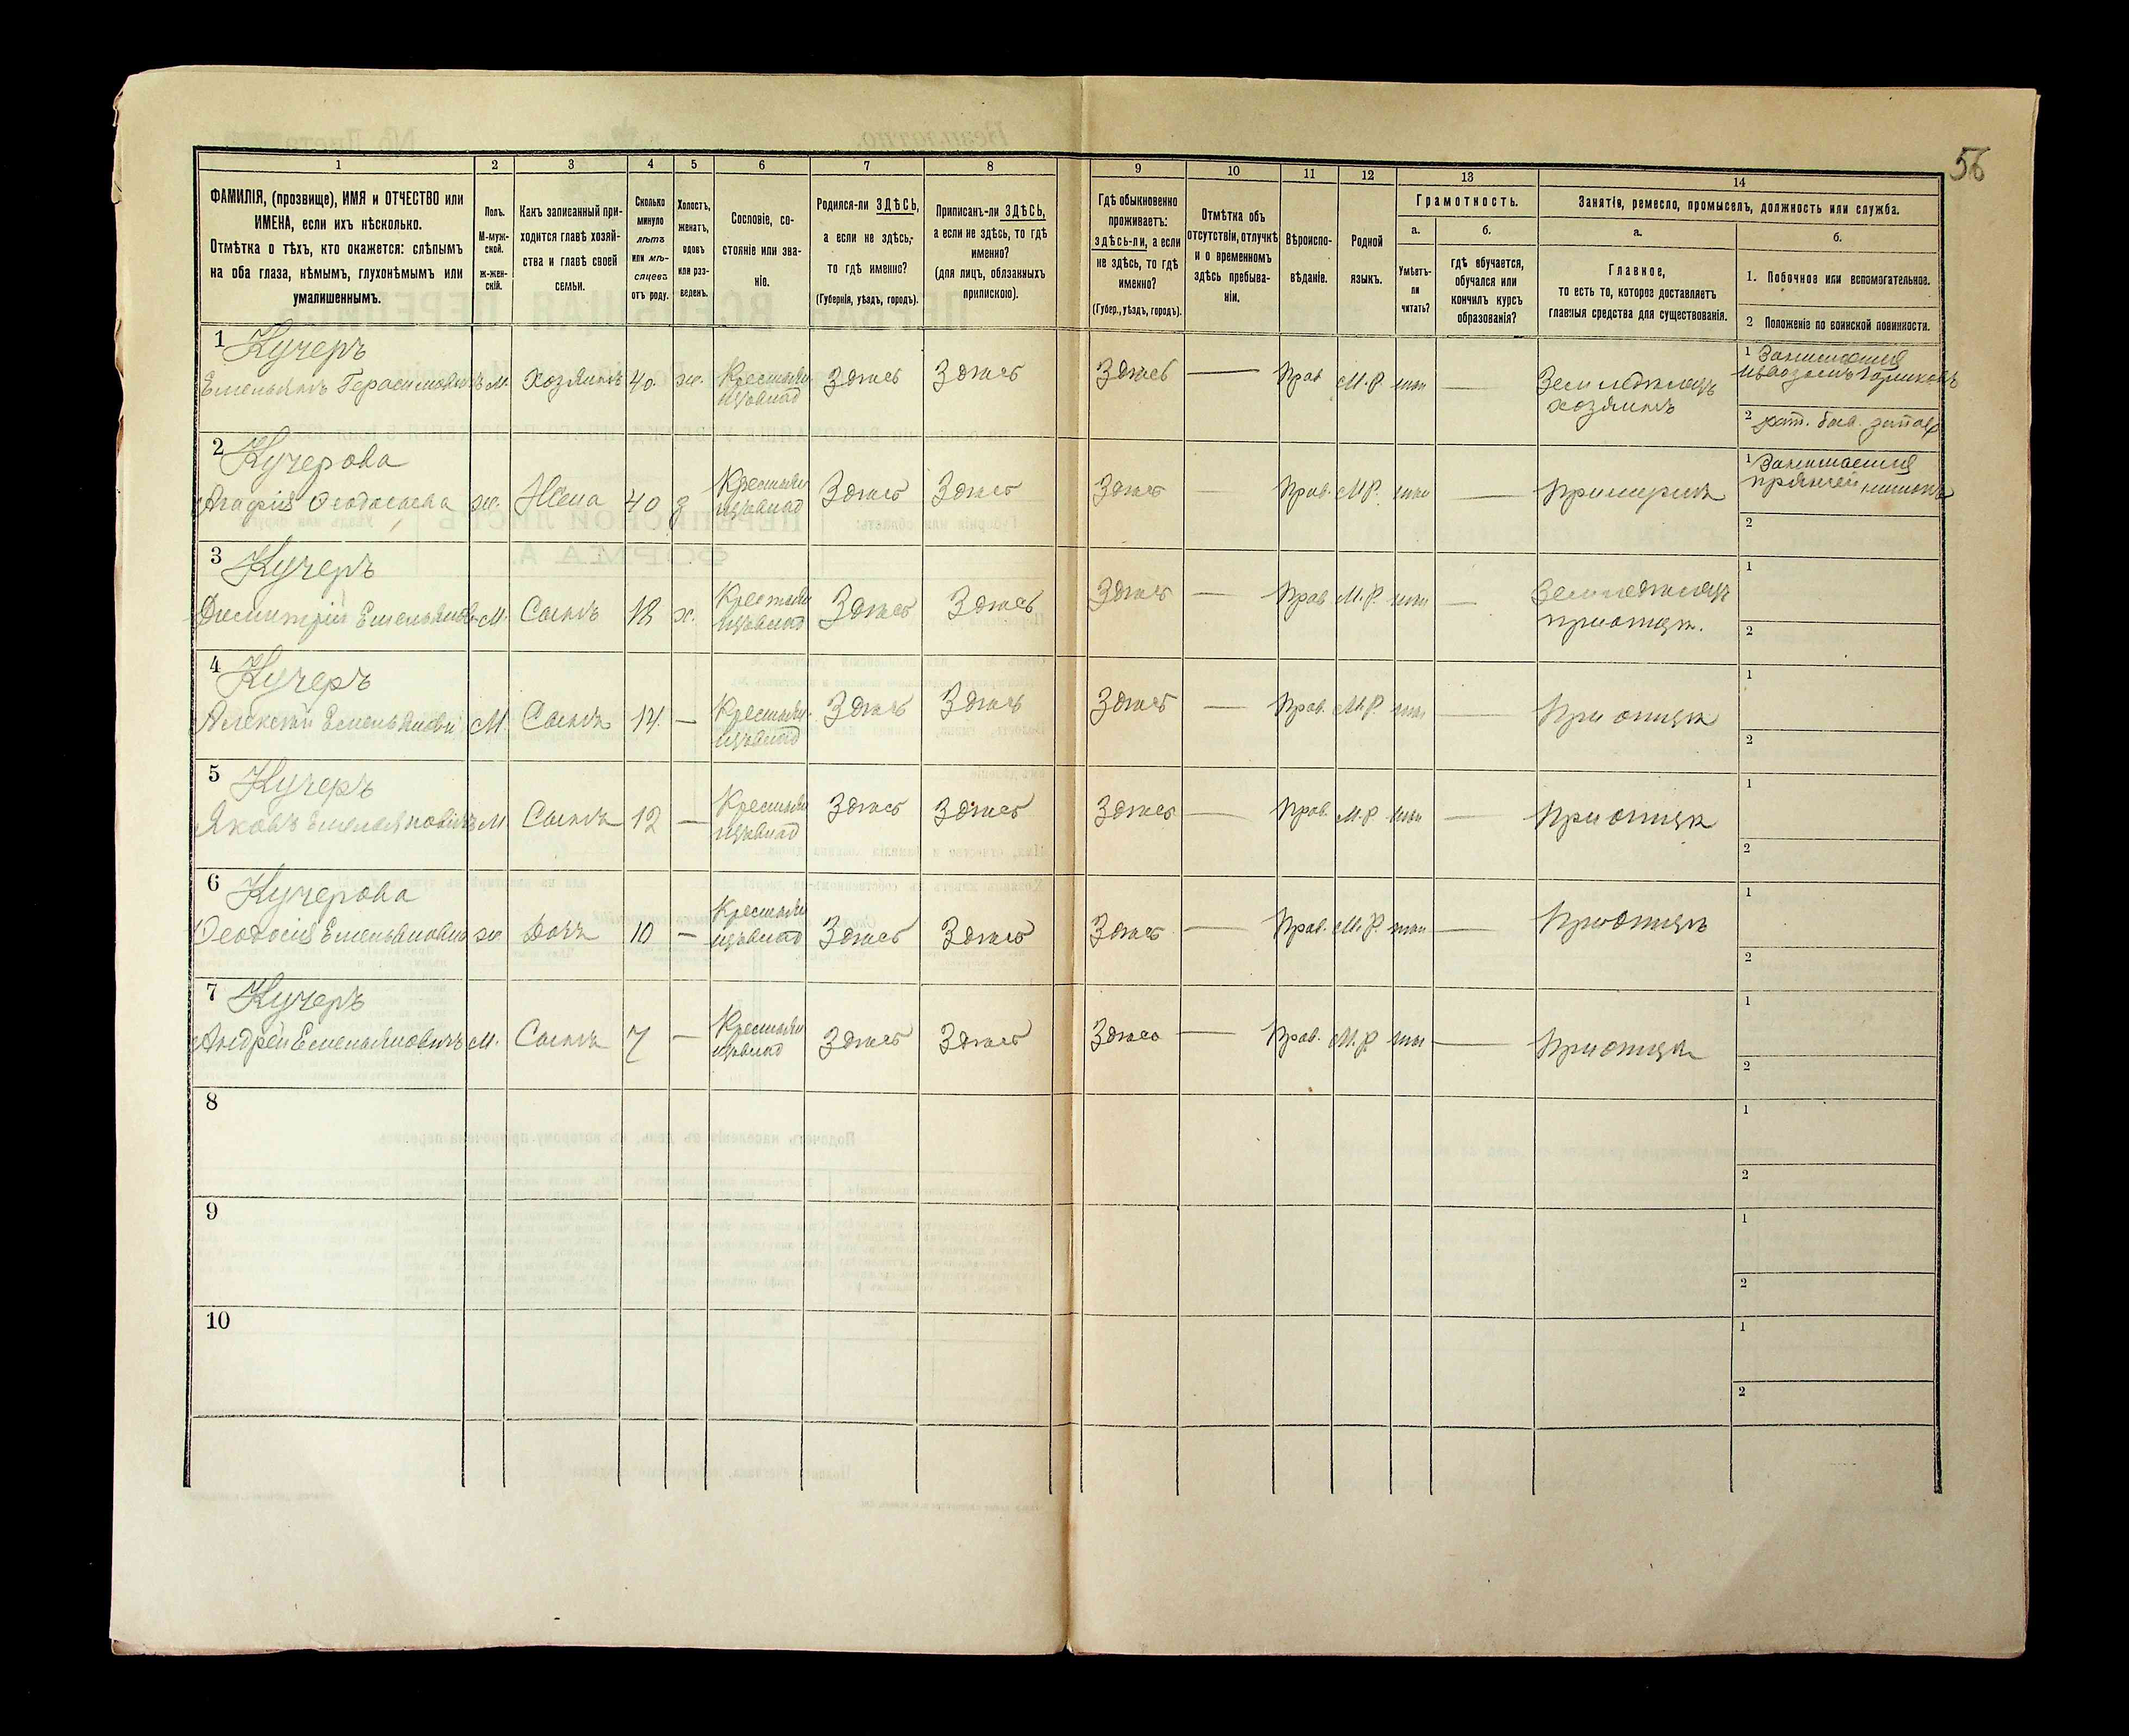 56
1 2 3 4 5 6 7 8 9 10 11 12 13 14
ФАМИЛІЯ, (прозвище), ИМЯ и ОТЧЕСТВО или
ИМЕНА, если ихъ нѣсколько.
Отмѣтка о тѣхъ, кто окажется: слѣпымъ
на оба глаза, нѣмымъ, глухонѣмымъ или
умалишеннымъ.
Полъ.
М-муж-
ской.
ж-жен-
скій.
Какъ записанный при-
ходится главѣ хозяй-
ства и главѣ своей
семьи.
Сколько
минуло
лѣтъ
или мѣ-
сяцевъ
отъ роду.
Холостъ,
женатъ,
вдовъ
или раз-
веденъ.
Сословіе, со-
стояніе или зва-
ніе.
Родился-ли ЗДѢСЬ,
а если не здѣсь,-
то гдѣ именно?
(Губернія, уѣздъ, городъ).
Приписанъ-ли ЗДѢСЬ,
а если не здѣсь, то гдѣ
именно?
(для лицъ, обязанныхъ
припискою).
Гдѣ обыкновенно
проживаетъ:
здѣсь-ли, а если
не здѣсь, то гдѣ
именно?
(Губер., уѣздъ, городъ).
Отмѣтка объ
отсутствіи, отлучкѣ
и о временномъ
здѣсь пребыва-
ніи.
Вѣроиспо-
вѣданіе.
Родной
языкъ.
Грамотность.
а.
Умѣетъ-
ли
читать?
б.
гдѣ обучается,
обучался или
кончилъ курсъ
образованія?
Занятія, ремесло, промыселъ, должность или служба.
а.
Главное,
то есть то, которое доставляетъ
главныя средства для существованія.
б.
1. Побочное или вспомогательное.
2 Положеніе по воинской повинности.
1 Кучеръ
Емельянъ Герасимовичъ М. Хозяинъ 40 ж. Крестьян. Здѣсь Здѣсь Здѣсь — Прав М.Р. — Земледѣлецъ 1 Занимается
хозяинъ
2
2 Кучерова
Агафія Ѳеодосаева ж. Жена 40 Крестьян Здѣсь Здѣсь Здѣсь — Прав. М.Р. — 1 Занимается
2
3 Кучеръ
Димитрій М. Сынъ 18 х. Крестьян Здѣсь Здѣсь Здѣсь — Прав М.Р. — Земледѣлецъ 1
2
4 Кучеръ
Алексѣй М. Сынъ 14. — Крестьян. Здѣсь Здѣсь Здѣсь — Прав. М.Р. — При отцѣ 1
2
5 Кучеръ
Яковъ Емельяновичъ М. Сынъ 12 — Крестьян Здѣсь Здѣсь Здѣсь — Прав. М.Р. — При отцѣ 1
2
6 Кучерова
Ѳеодосія Емельяновна ж Дочь 10 — Крестьян Здѣсь Здѣсь Здѣсь — Прав. М.Р. При отцѣ 1
2
7 Кучеръ
Андрей Емельяновичъ М. Сынъ 7 — Крестьян Здѣсь Здѣсь Здѣсь — Прав. М.Р — При отцѣ 1
2
8 1
2
9 1
2
10 1
2